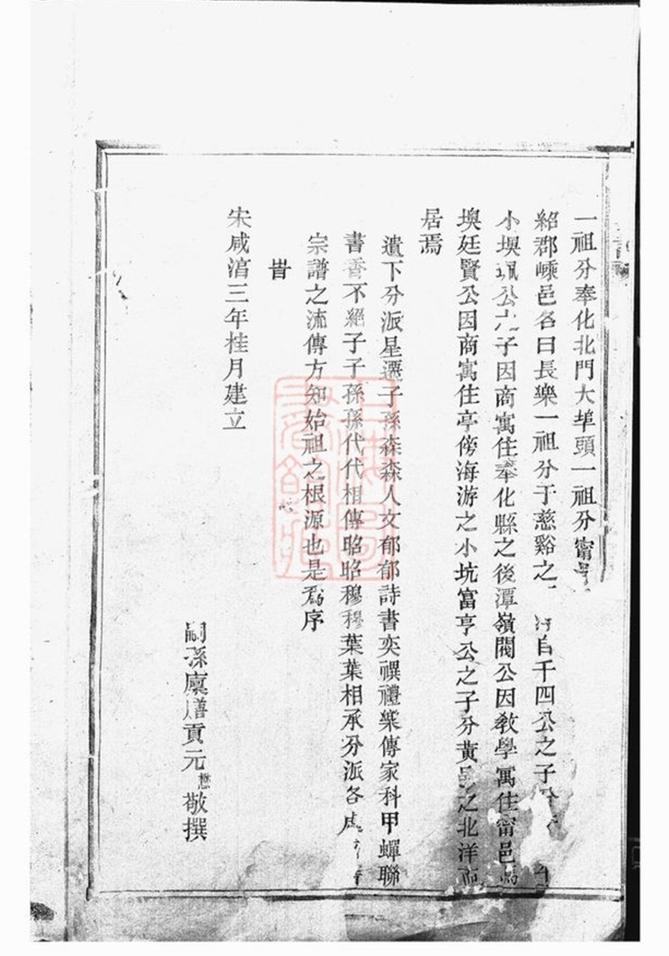 一祖分奉化北門大埠頭一祖分甯
紹郡嵊邑名曰長樂一祖分于慈谿之 自千四公之子
小堁 公 子因商寓住奉化縣之後潭嶺閥公因敎學寓住甯邑
堁廷賢公因商寓住亭傍海游之小坑富亨公之子分黃 之北洋而
居焉
遺下分派星遷子孫森森人文郁郁詩書奕禩禮樂傳家科甲蟬聯
書香不絕子子孫孫代代相傳昭昭穆穆葉葉相承分派各處
宗譜之流傳方知始祖之根源也是爲序
旹
宋咸淳三年桂月建立
嗣孫廩膳貢元懋敬撰